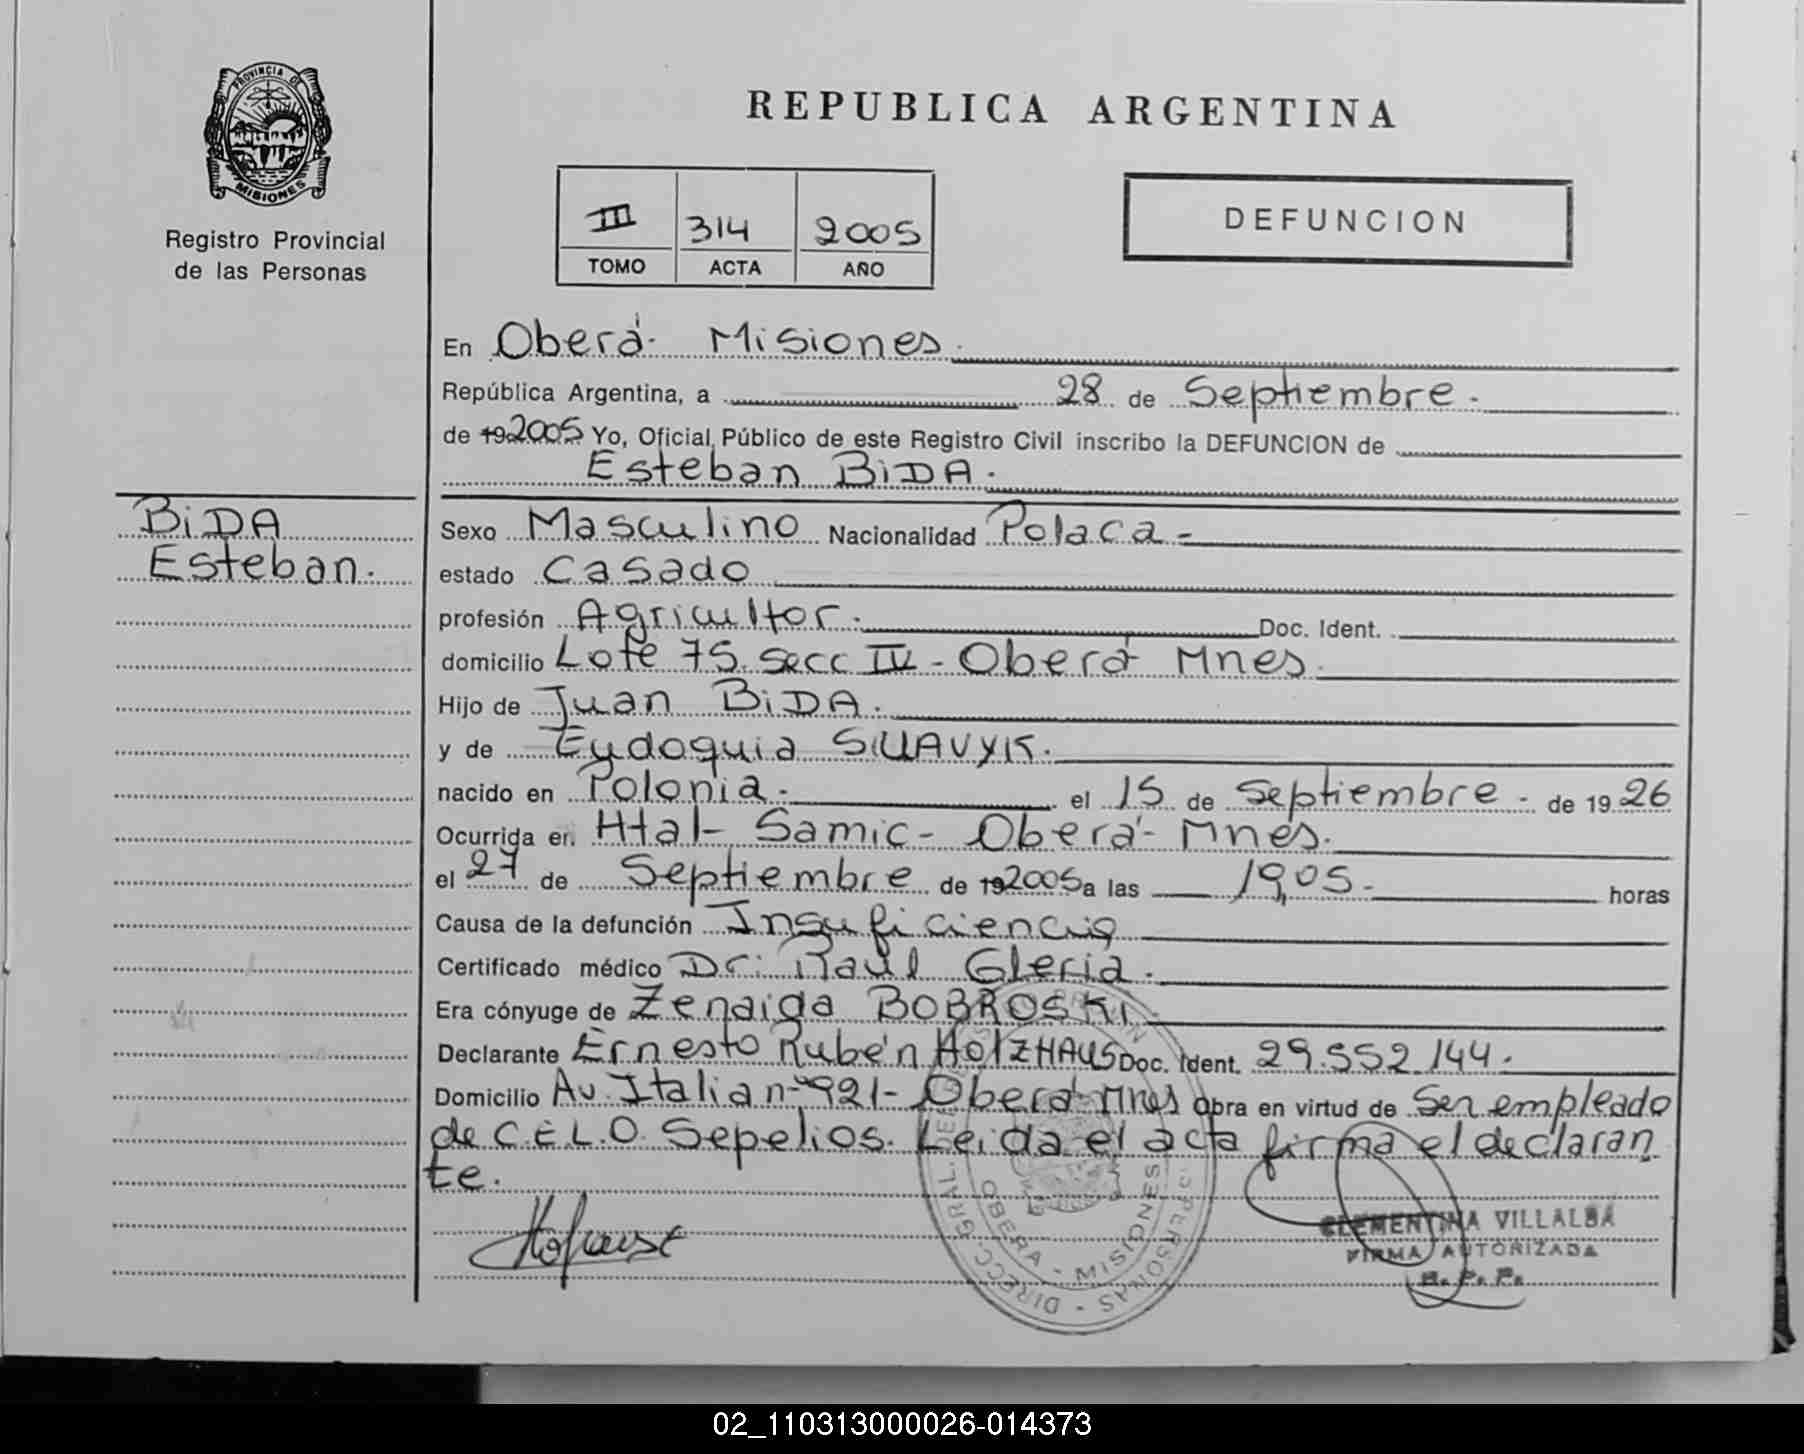 PROVINCIA DE
MISIONES
Registro Provincial
de las Personas
REPUBLICA ARGENTINA
III 314 2005
TOMO ACTA AÑO
DEFUNCION
En Oberá- Misiones.
República Argentina, a 28 de Septiembre.
de 19 2005 Yo, Oficial Público de este Registro Civil inscribo la DEFUNCION de
Esteban BiDA.
BiDA
Esteban.
Sexo Masculino Nacionalidad Polaca-
estado Casado
profesión Agricultor. Doc. Ident.
domicilio Lote 75. secc IV - Oberá Mnes.
Hijo de Juan BiDA.
y de Eydoquia
nacido en Polonia. el 15 de Septiembre- de 19 26
Ocurrida en Htal- Samic- Oberá- Mnes.
el 27 de Septiembre de 19 2005 a las 19,05. horas
Causa de la defunción Insuficiencia
Certificado médico Dr: Raúl Gleria.
Era cónyuge de Zenaida BOBROSKI
Declarante Ernesto Rubén HOLZHAUS Doc. Ident. 29.552.144.
Domicilio Av. Italia n- 921- Oberá- Mnes Obra en virtud de Ser empleado
de C.E.L.O. Sepelios. Leida el acta firma el declaran
te.
DIRECC GRAL. PERSONAS
OBERA - MISIONES
CLEMENTINA VILLALBA
FIRMA AUTORIZADA
R. P. P.
02_110313000026-014373